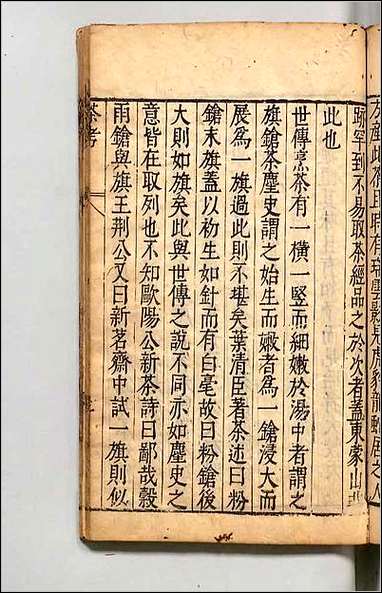 方産此茶且時有瑞雲影見虎豹龍蛇居之人
跡罕到不易取茶經品之於次者蓋東蒙山
此也
世傳烹茶有一橫一竪而細嫩於湯中者謂之
旗鎗茶麈史謂之始生而嫩者為一鎗浸大而
展為一旗過此則不堪矣葉清臣著茶述曰粉
鎗末旗蓋以初生如針而有白毫故曰粉鎗後
大則如旗矣此與世傳之說不同亦如麈史之
意皆在取列也不知歐陽公新茶詩曰鄙哉穀
雨鎗與旗王荆公又曰新茗齋中試一旗則似
茶考